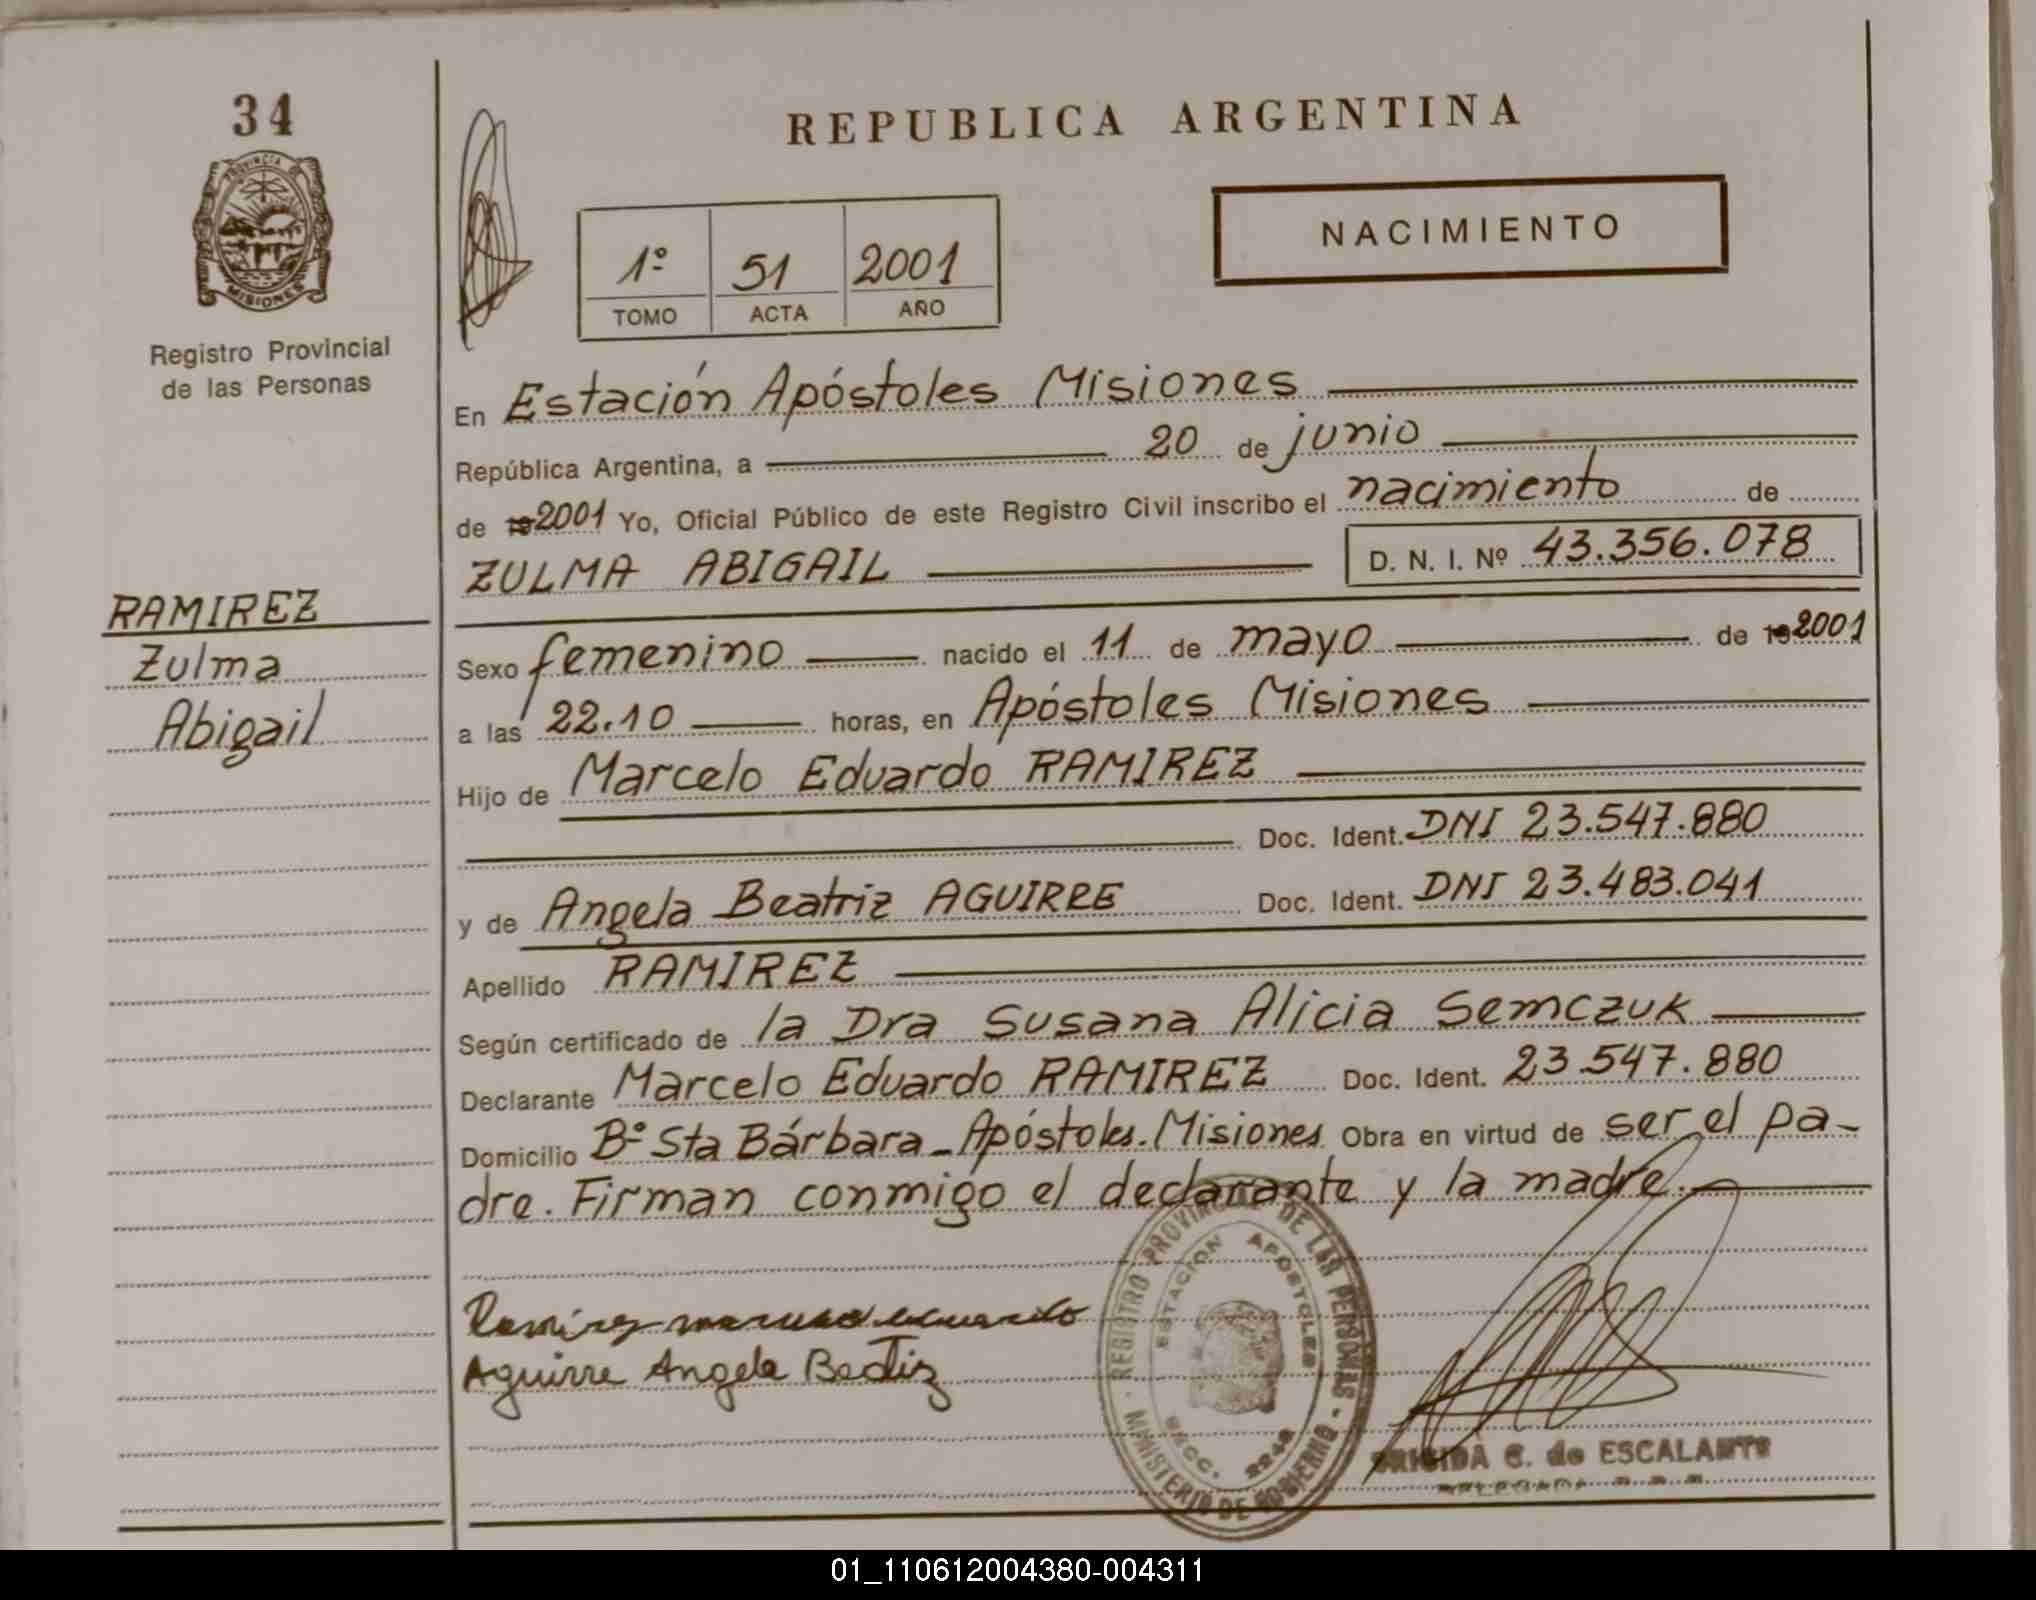 34
PROVINCIA
MISIONES
Registro Provincial
de las Personas
RAMIREZ
Zulma
Abigail
REPUBLICA ARGENTINA
NACIMIENTO
1º 51 2001
TOMO ACTA AÑO
En Estación Apóstoles Misiones
República Argentina, a 20 de junio
de 19 2001 Yo, Oficial Público de este Registro Civil inscribo el nacimiento de
ZULMA ABIGAIL D. N. I. Nº 43.356.078
Sexo femenino nacido el 11 de mayo de 19 2001
a las 22.10 horas, en Apóstoles Misiones
Hijo de Marcelo Eduardo RAMIREZ
Doc. Ident. DNI 23.547.880
y de Angela Beatriz AGUIRRE Doc. Ident. DNI 23.483.041
Apellido RAMIREZ
Según certificado de la Dra Susana Alicia Semczuk
Declarante Marcelo Eduardo RAMIREZ Doc. Ident. 23.547.880
Domicilio Bº Sta Bárbara - Apóstoles. Misiones Obra en virtud de ser el pa-
dre. Firman conmigo el declarante y la madre.
Ramirez eduardo
Aguirre Angela Beatriz
REGISTRO PROVINCIAL DE LAS PERSONAS - MINISTERIO DE GOBIERNO -
ESTACION APOSTOLES
SECC.
BRIGIDA C. de ESCALANTE
01_110612004380-004311